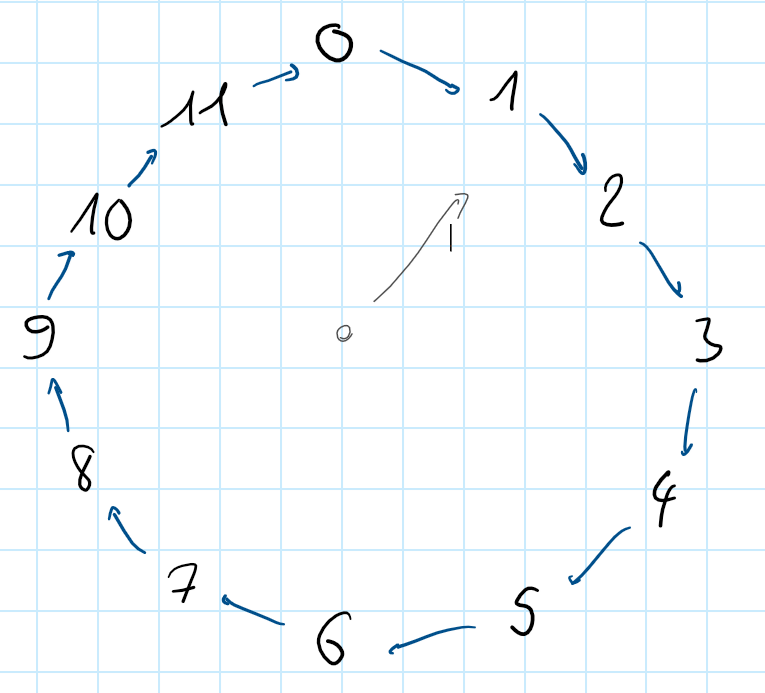 0
1
2
3
4
5
6
7
8
9
10
11